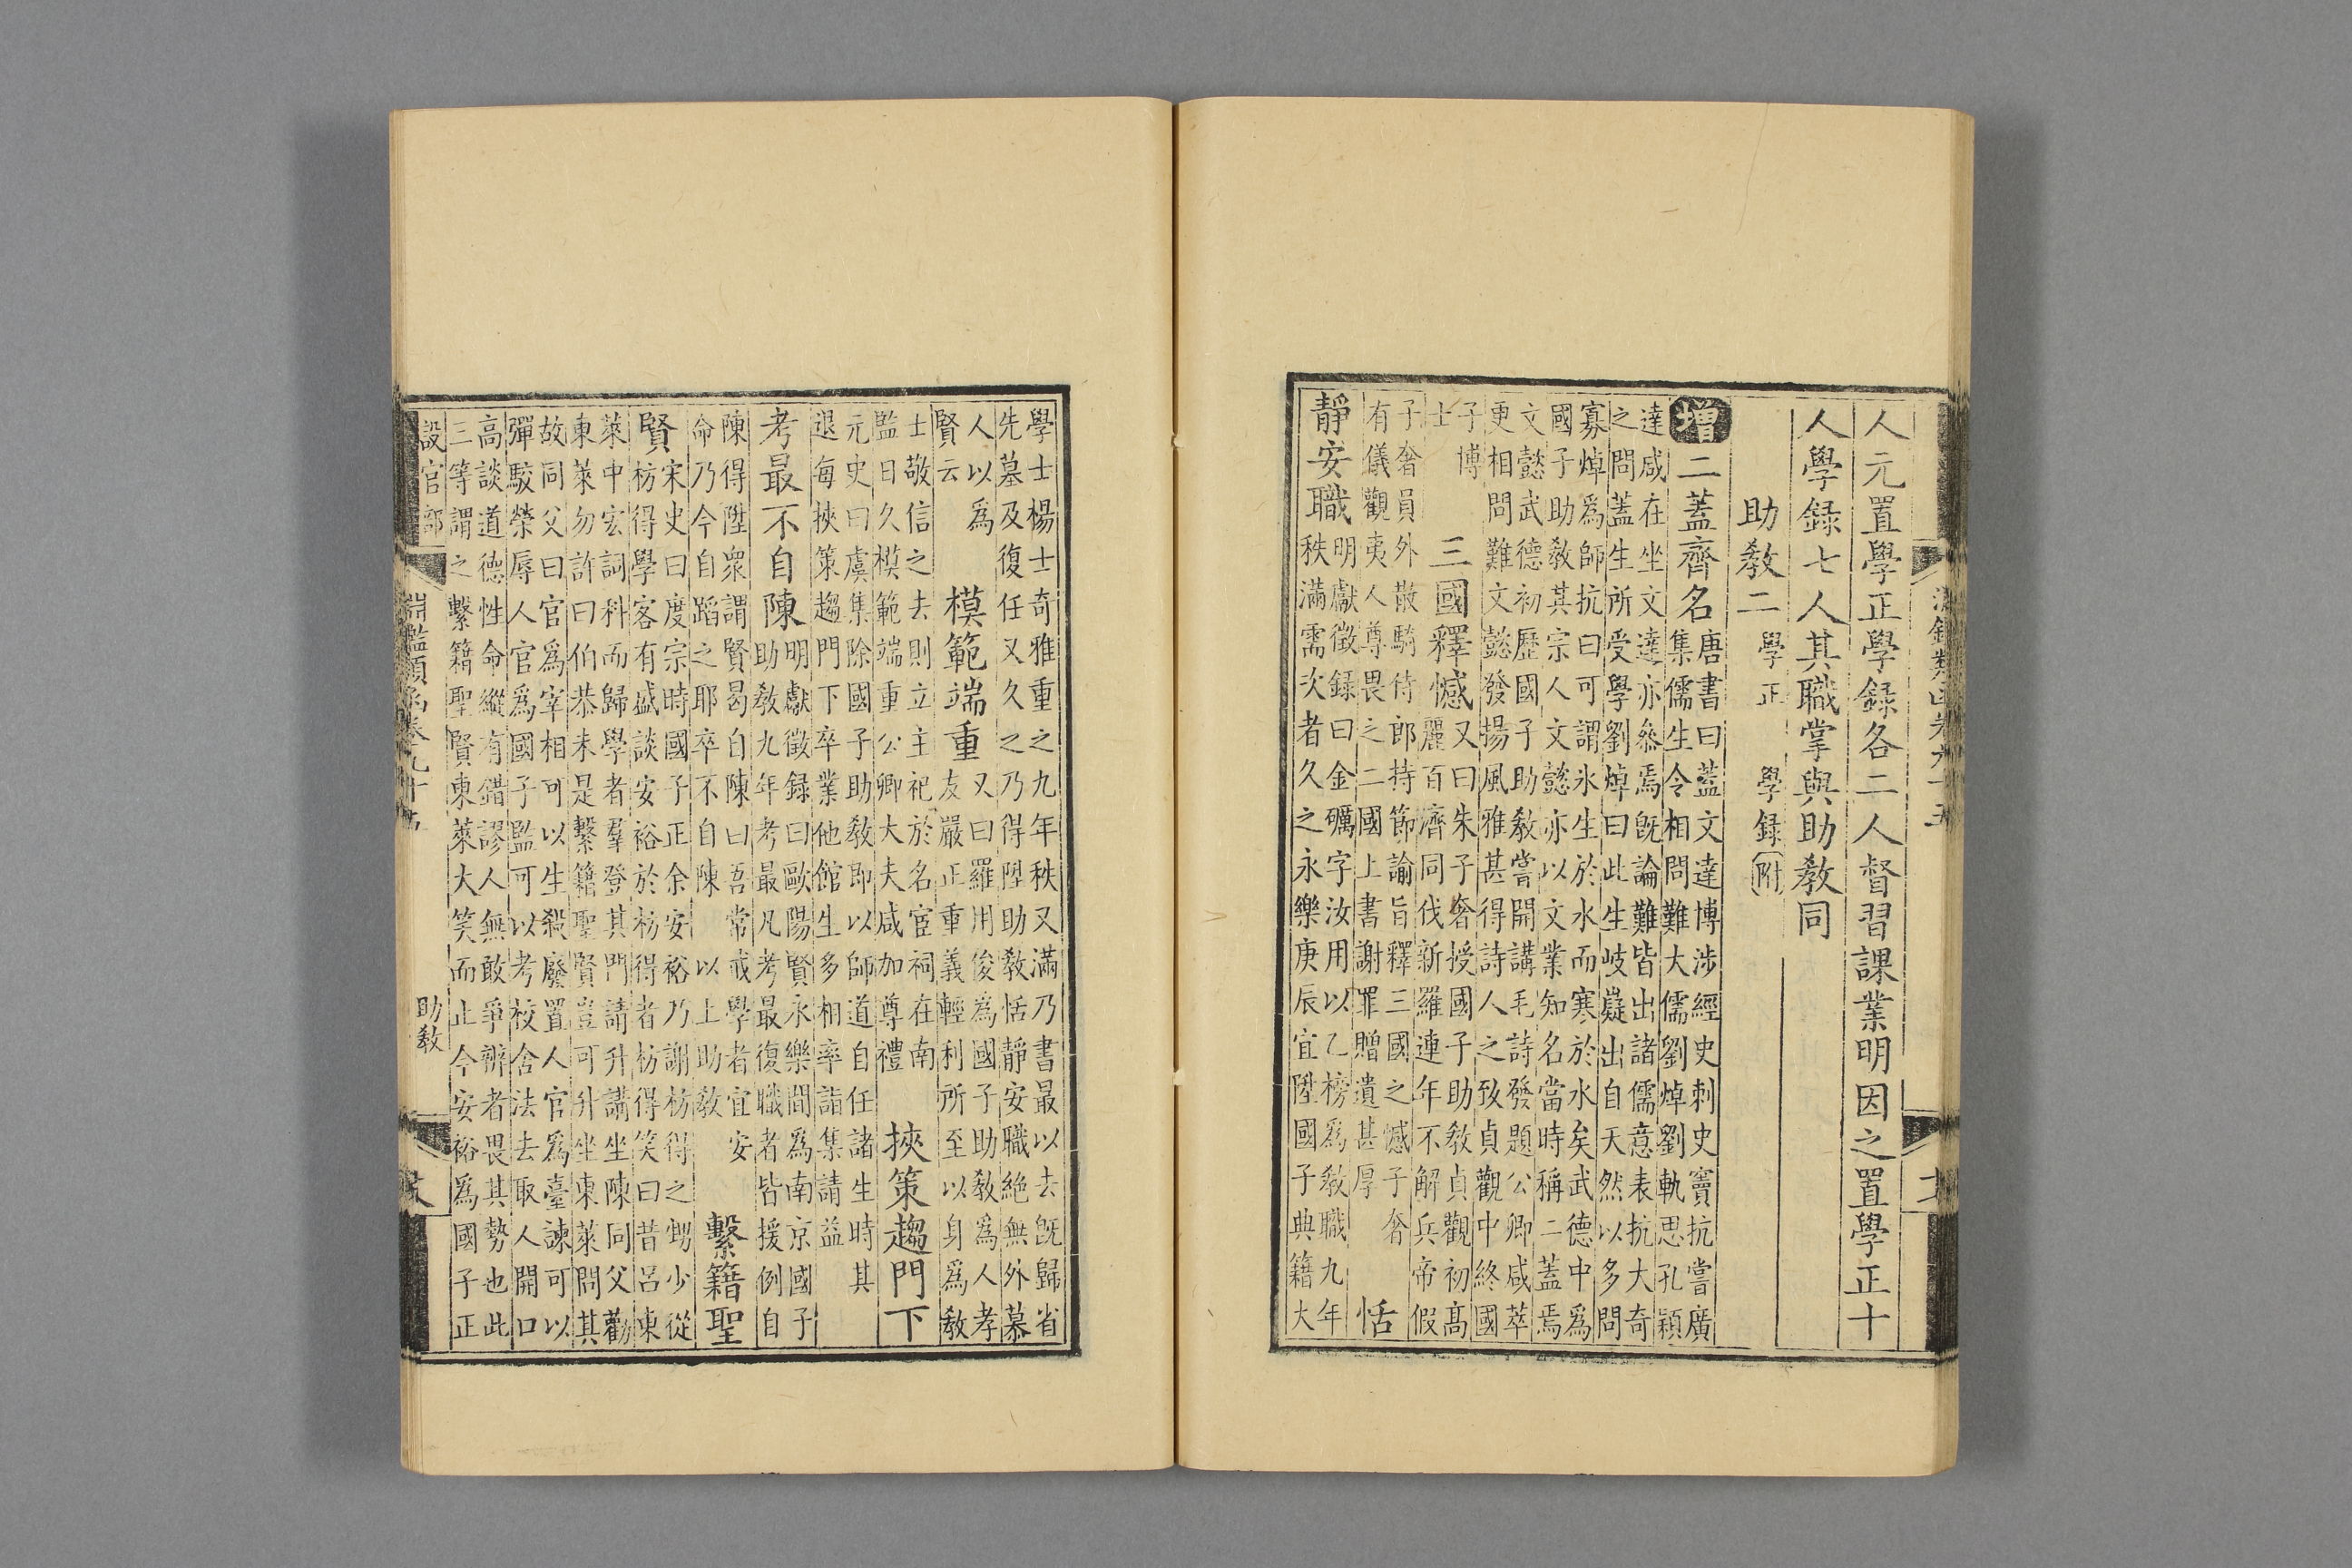 人元置學正學録各二人督習課業明因之置學正十
人學録七人其職掌與助教同
助教二 學正 學録附
增 二蓋齊名 唐書曰蓋文達博涉經史刺史竇抗嘗廣
集儒生令相問難大儒劉焯劉軌思孔穎
達咸在坐文達亦叅焉既論難皆出諸儒意表抗大奇
之問蓋生所受學劉焯曰此生岐嶷出自天然以多問
寡焯爲師抗曰可謂冰生於水而寒於水矣武德中爲
國子助教其宗人文懿亦以文業知名當時稱二蓋焉
文懿武德初歷國子助教嘗開講毛詩發題公卿咸萃
更相問難文懿發揚風雅甚得詩人之致貞觀中終國
子博
士
三國釋憾 又曰朱子奢授國子助教貞觀初高
麗百濟同伐新羅連年不解兵帝假
子奢員外散騎侍郎持節諭旨釋三國之憾子奢
有儀觀夷人尊畏之二國上書謝罪贈遺甚厚
恬
靜安職 明獻徵録曰金礪字汝用以乙榜爲教職九年
秩滿需次者久之永樂庚辰宜陞國子典籍大
學士楊士奇雅重之九年秩又滿乃書最以去既歸省
先墓及復任又久之乃得陞助教恬靜安職絶無外慕
人以爲
賢云
模範端重 又曰羅用俊爲國子助教爲人孝
友嚴正重義輕利所至以身爲教
士敬信之去則立主祀於名宦祠在南
監日久模範端重公卿大夫咸加尊禮
挾策趨門下
元史曰虞集除國子助教即以師道自任諸生時其
退每挾策趨門下卒業他館生多相率詣集請益
考最不自陳 明獻徵録曰歐陽賢永樂間爲南京國子
助教九年考最凡考最復職者皆援例自
陳得陞衆謂賢曷自陳曰吾常戒學者宜安
命乃今自蹈之耶卒不自陳 以上助教
繫籍聖
賢 宋史曰度宗時國子正余安裕乃謝枋得之甥少從
枋得學客有盛談安裕於枋得者枋得笑曰昔呂東
萊中宏詞科而歸學者羣登其門請升講坐陳同父勸
東萊勿許曰伯恭未是繫籍聖賢豈可升坐東萊問其
故同父曰官爲宰相可以生殺廢置人官爲臺諫可以
彈駁榮辱人官爲國子監可以考校舍法去取人開口
高談道德性命縱有錯謬人無敢爭辨者畏其勢也此
三等謂之繫籍聖賢東萊大笑而止今安裕爲國子正
設官部 助教